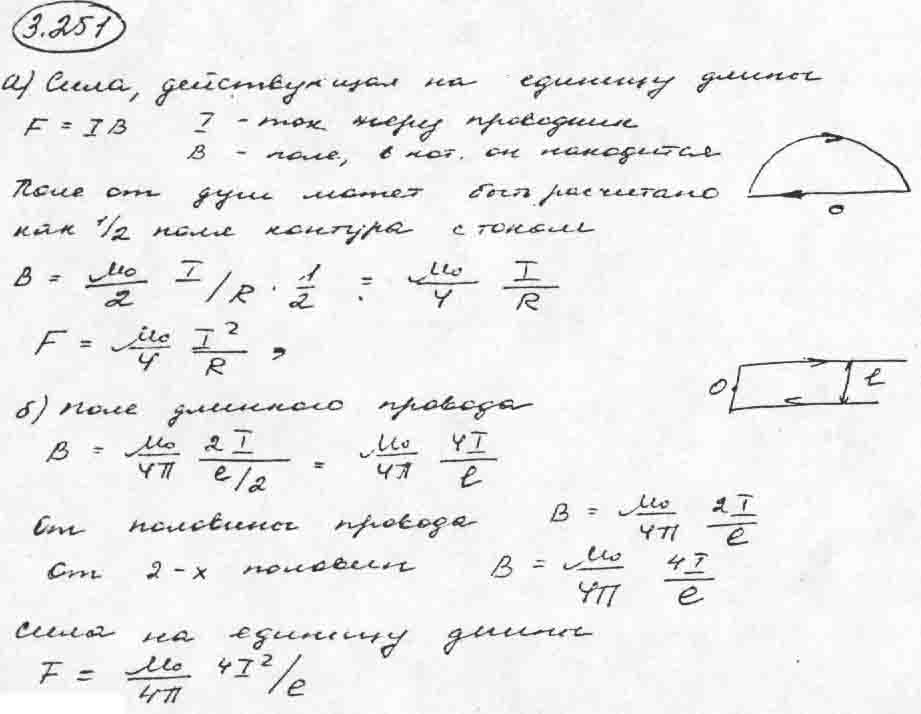 3.251
а) Сила, действующая на единицу длины
F = IB I - ток через проводник
B - поле, в кот. он находится
Поле от дуги может быть расчитано
как 1/2 поля контура с током
B = μ₀/2 I/R · 1/2 = μ₀/4 I/R
F = μ₀/4 I²/R ,
O
б) Поле длинного провода
B = μ₀/4π 2I/(l/2) = μ₀/4π 4I/l
O l
От половины провода B = μ₀/4π 2I/l
От 2-х половин B = μ₀/4π 4I/l
Сила на единицу длины
F = μ₀/4π 4I²/l